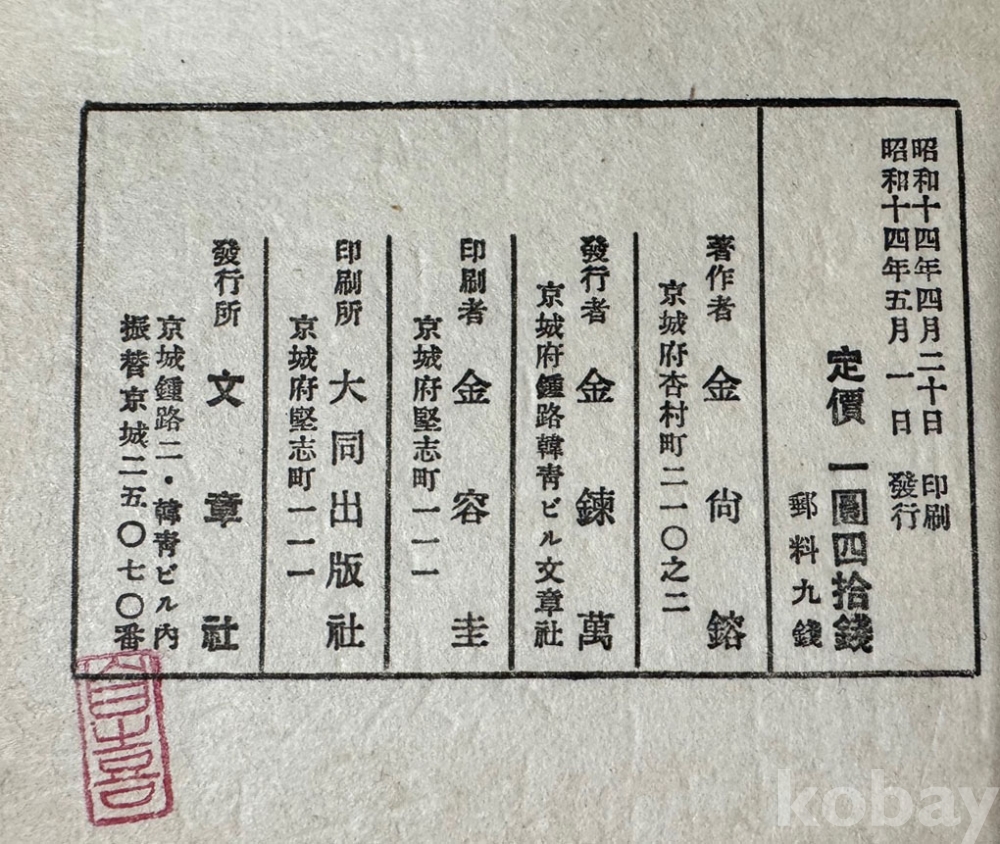 昭和十四年四月二十日 印刷
昭和十四年五月一日 發行
定價 一圓四拾錢
郵料九錢
著作者 金尙鎔
京城府杏村町二一〇之二
發行者 金鍊萬
京城府鍾路韓靑ビル文章社
印刷者 金容圭
京城府堅志町一一一
印刷所 大同出版社
京城府堅志町一一一
發行所 文章社
京城鍾路二・韓靑ビル內
振替京城二五〇七〇番
kobay